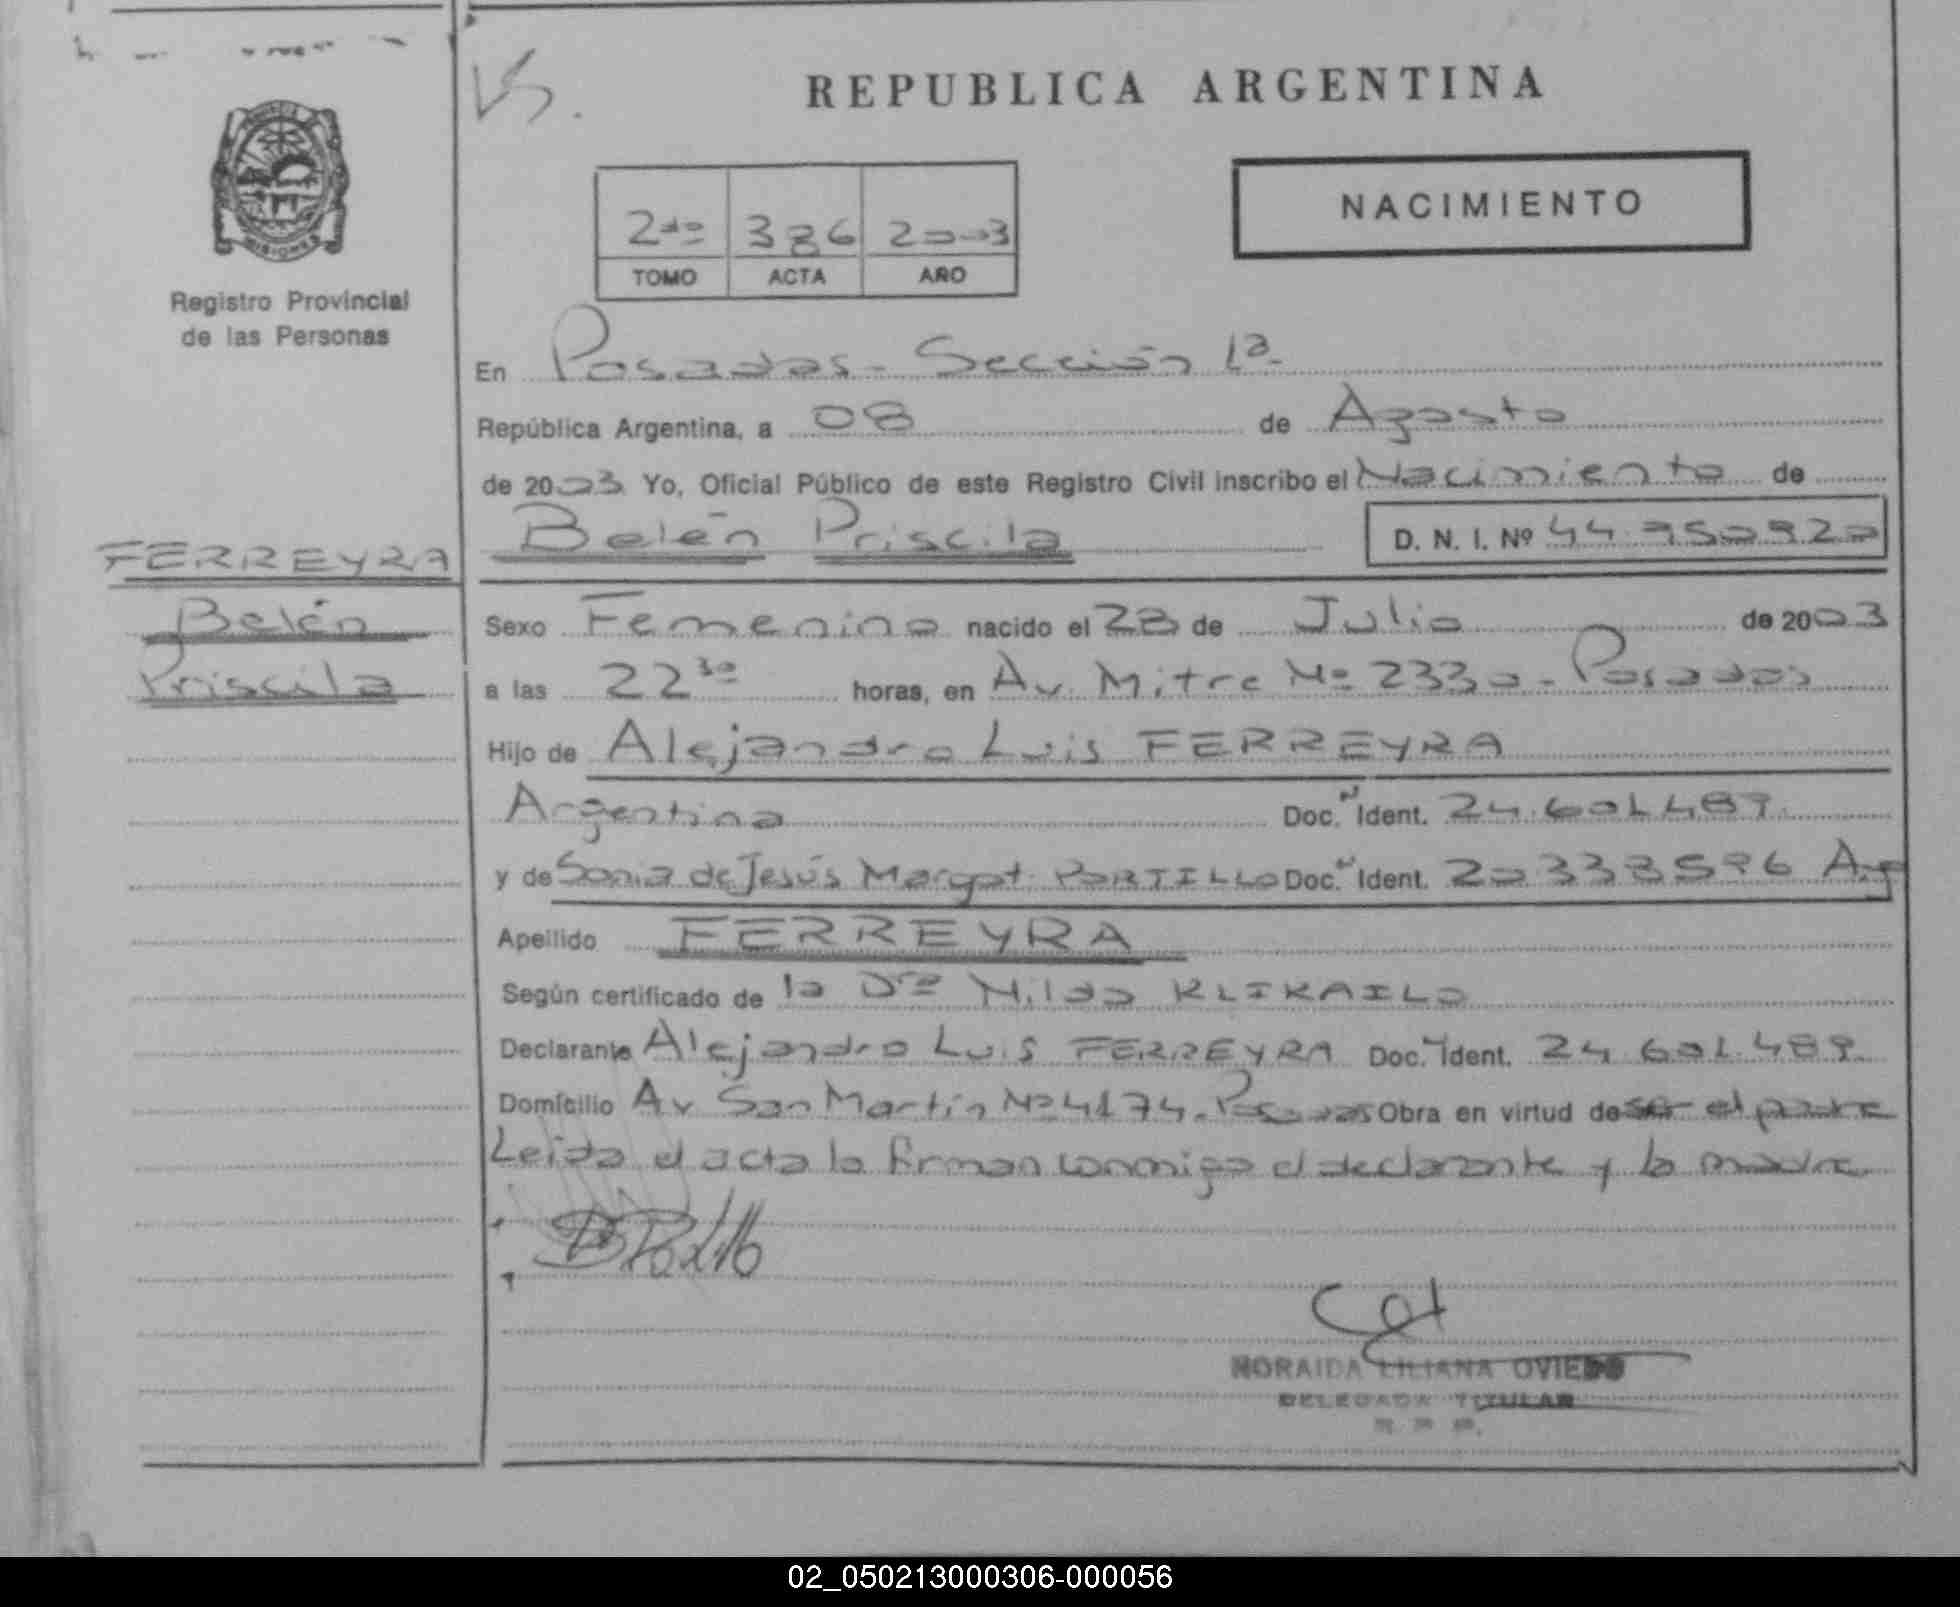 REPUBLICA ARGENTINA
NACIMIENTO
2do 386 2003
TOMO ACTA AÑO
MISIONES
Registro Provincial
de las Personas
FERREYRA
Belén
Priscila
En Posadas - Sección 1a.
República Argentina, a 08 de Agosto
de 2003 Yo, Oficial Público de este Registro Civil inscribo el Nacimiento de
Belén Priscila D. N. I. Nº 44.950.920
Sexo Femenino nacido el 28 de Julio de 2003
a las 22 30 horas, en Av. Mitre Nº 2330 - Posadas
Hijo de Alejandro Luis FERREYRA
Argentina Doc. N Ident. 24.601.489.
y de Sonia de Jesús Margot PORTILLO Doc. N Ident. 20338596 Arg
Apellido FERREYRA
Según certificado de la Dra Nilda KLIKAILO
Declarante Alejandro Luis FERREYRA Doc. N Ident. 24 601.489.
Domicilio Av San Martín Nº 4174. Posadas Obra en virtud de ser el padre
Leída el acta la firman conmigo el declarante y la madre
NORAIDA LILIANA OVIEDO
DELEGADA TITULAR
02_050213000306-000056